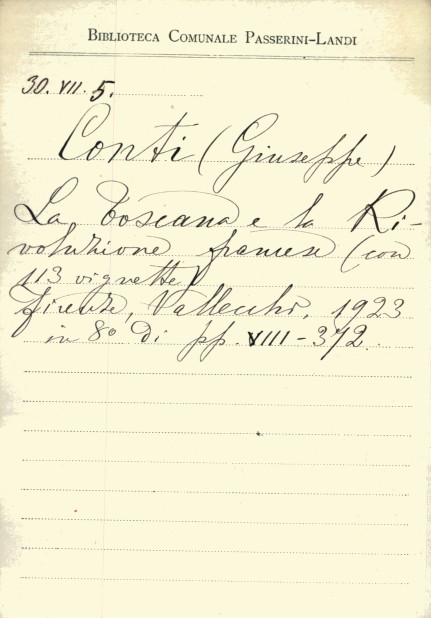 BIBLIOTECA COMUNALE PASSERINI-LANDI
30. VII. 5.
Conti (Giuseppe)
La Toscana e la Ri-
voluzione francese (con
113 vignette)
Firenze, Vallecchi, 1923
in 8º di pp. VIII-372.